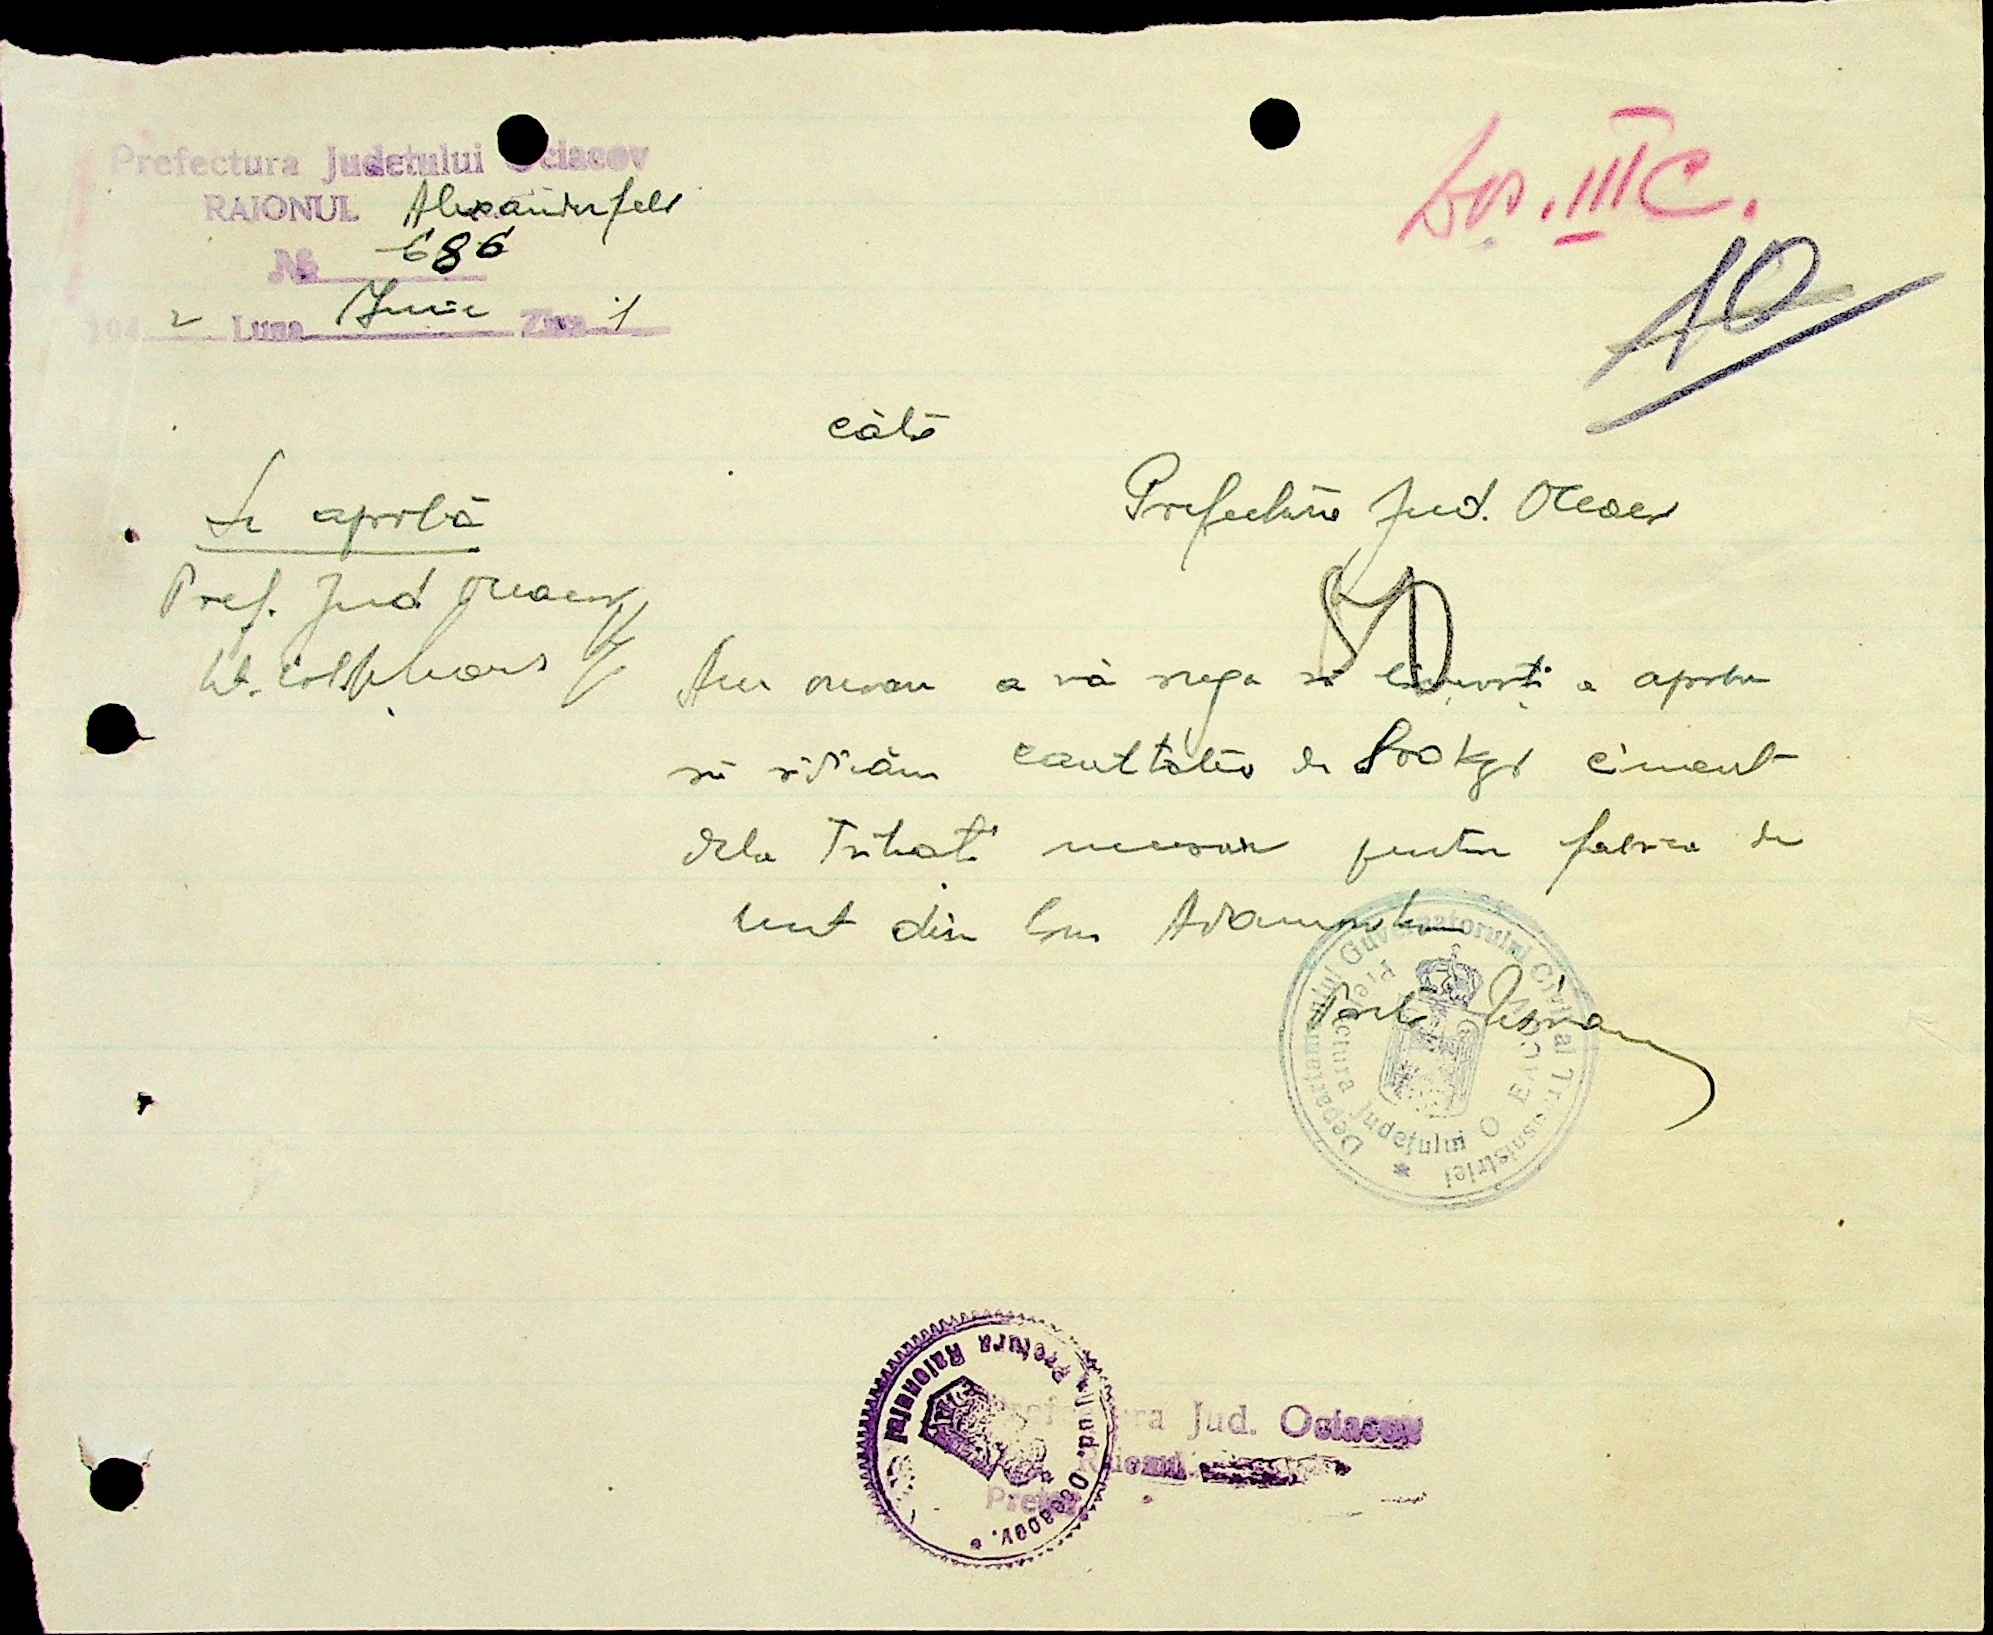 Prefectura Județului Ociacov
RAIONUL Alexanderfeld
№ 686
1942 Luna Iunie Ziua 1
Dos. III C.
10
către
Prefectura Jud. Oceacov
Se aprobă
Pref. Jud. Oceacov
Lt. Col.
Am onoare a vă ruga să binevoiți a aproba
să ridicăm cantitatea de 800 kgr ciment
dela Trihati necesar pentru fabrica de
unt din com. Adamovka
Departamentul Guvernatorului Civil al Transnistriei
Prefectura Județului OCEACOV
Pretura Raionului
Jud. Oceacov.
Prefectura Jud. Ociacov
Raionul
Pretor